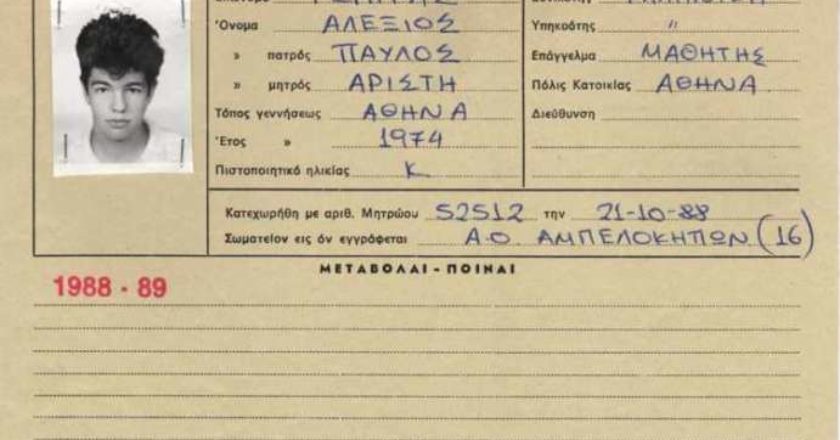 Όνομα ΑΛΕΞΙΟΣ
» πατρός ΠΑΥΛΟΣ
» μητρός ΑΡΙΣΤΗ
Τόπος γεννήσεως ΑΘΗΝΑ
Έτος » 1974
Πιστοποιητικό ηλικίας Κ
Υπηκοότης "
Επάγγελμα ΜΑΘΗΤΗΣ
Πόλις Κατοικίας ΑΘΗΝΑ
Διεύθυνση
Κατεχωρήθη με αριθ. Μητρώου 52512 την 21-10-88
Σωματείον εις όν εγγράφεται Α.Ο. ΑΜΠΕΛΟΚΗΠΩΝ (16)
ΜΕΤΑΒΟΛΑΙ - ΠΟΙΝΑΙ
1988 - 89